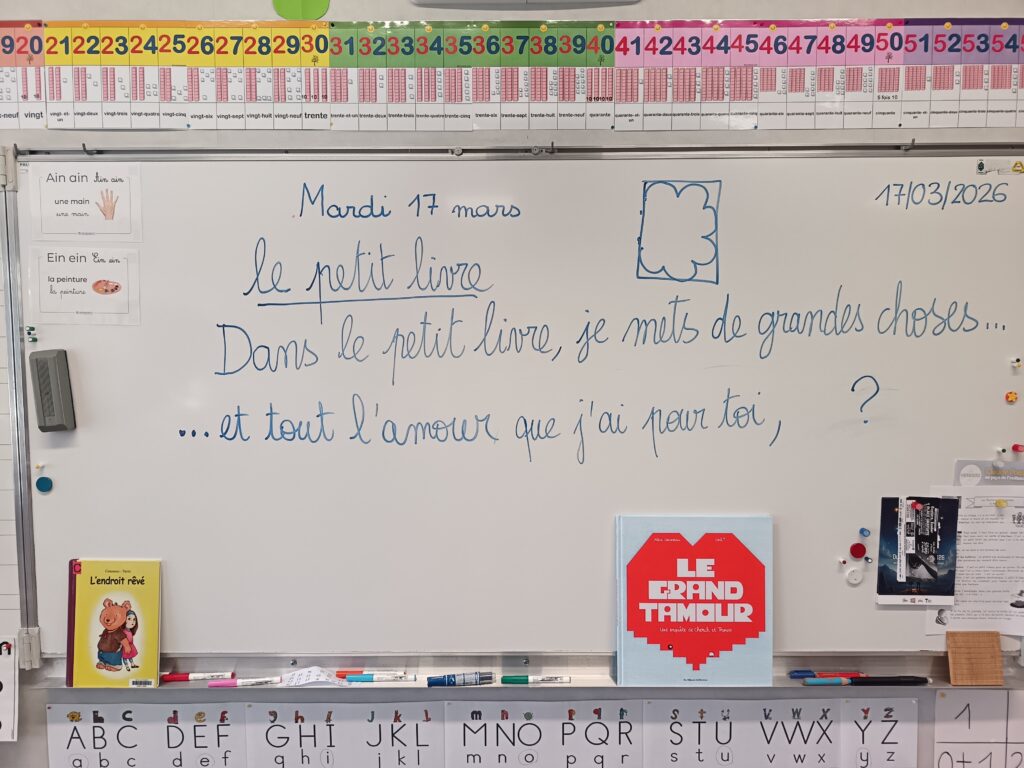 20 21 22 23 24 25 26 27 28 29 30 31 32 33 34 35 36 37 38 39 40 41 42 43 44 45 46 47 48 49 50 51 52 53 54
vingt vingt-et-un vingt-deux vingt-trois vingt-quatre vingt-cinq vingt-six vingt-sept vingt-huit vingt-neuf trente trente-et-un trente-deux trente-trois trente-quatre trente-cinq trente-six trente-sept trente-huit trente-neuf quarante quarante-et-un quarante-deux quarante-trois quarante-quatre quarante-cinq quarante-six quarante-sept quarante-huit quarante-neuf cinquante
Ain ain Ain ain
une main
une main
Ein ein Ein ein
la peinture
la peinture
Mardi 17 mars
17/03/2026
le petit livre
Dans le petit livre, je mets de grandes choses...
...et tout l'amour que j'ai pour toi, ?
L'endroit rêvé
LE
GRAND
TAMOUR
A B C D E F G H I J K L M N O P Q R S T U V W X Y Z
a b c d e f g h i j k l m n o p q r s t u v w x y z
1
0+1